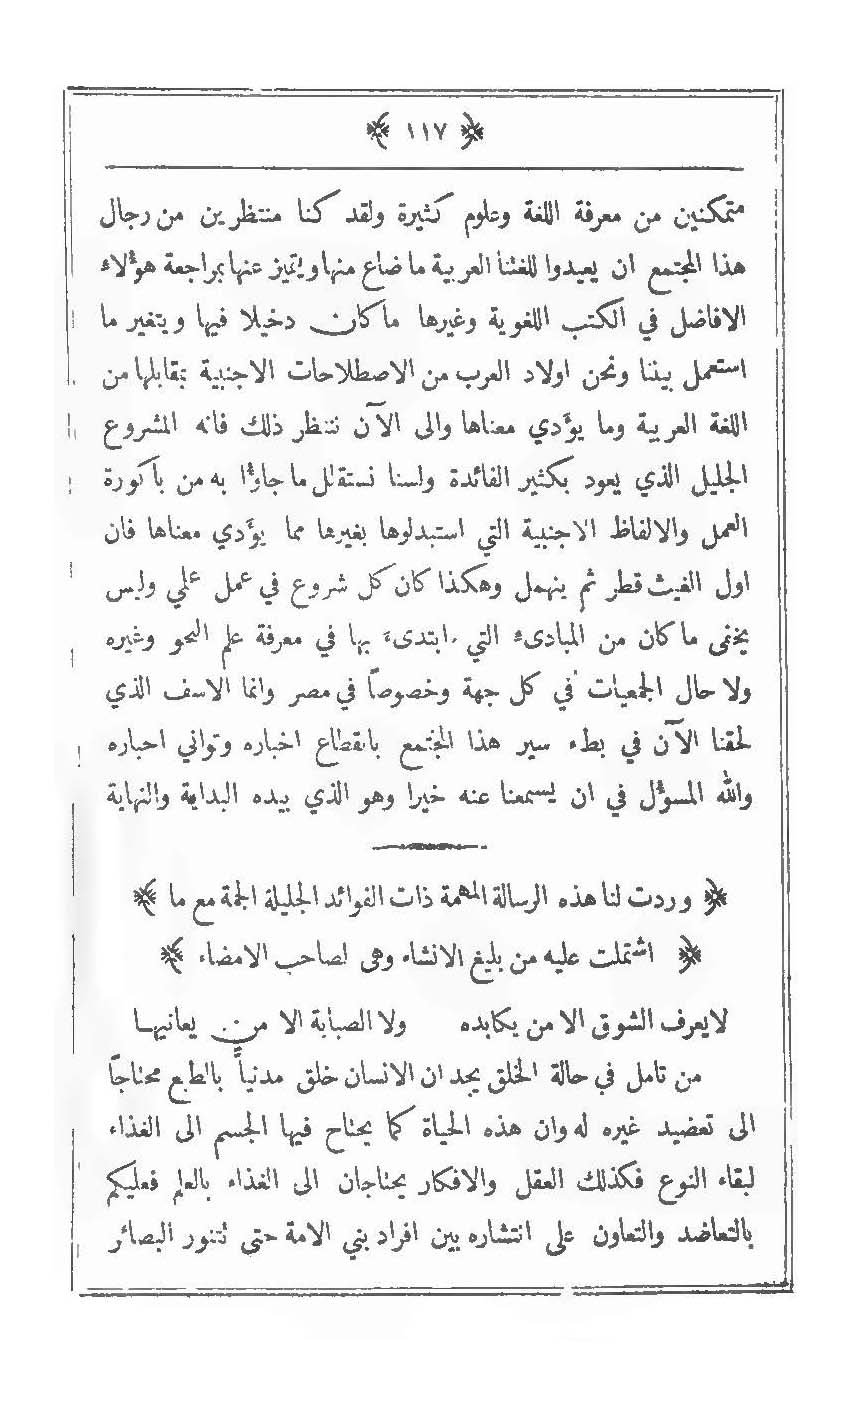 ﴿ ١١٧ ﴾
متمكنين من معرفة اللغة وعلوم كثيرة ولقد كنا منتظرين من رجال
هذا المجتمع ان يعيدوا للغتنا العربية ما ضاع منها ويتميز عنها بمراجعة هؤلاء
الافاضل في الكتب اللغوية وغيرها ما كان دخيلا فيها ويتغير ما
استعمل بيننا ونحن اولاد العرب من الاصطلاحات الاجنبية بمقابلها من
اللغة العربية وما يؤدي معناها والى الآن ننتظر ذلك فانه المشروع
الجليل الذي يعود بكثير الفائدة ولسنا نستقلل ما جاؤا به من باكورة
العمل والالفاظ الاجنبية التي استبدلوها بغيرها مما يؤدي معناها فان
اول الغيث قطر ثم ينهمل وهكذا كان كل شروع في عمل علمي وليس
يخفى ما كان من المبادىء التي ابتدىء بها في معرفة علم النحو وغيره
ولا حال الجمعيات في كل جهة وخصوصاً في مصر وانما الاسف الذي
لحقنا الآن في بطء سير هذا المجتمع بانقطاع اخباره وتواني احباره
والله المسؤل في ان يسمعنا عنه خيرا وهو الذي بيده البداية والنهاية
﴿ وردت لنا هذه الرسالة المهمة ذات الفوائد الجليلة الجمة مع ما ﴾
﴿ اشتملت عليه من بليغ الانشاء وهى لصاحب الامضاء ﴾
لايعرف الشوق الا من يكابده ولا الصبابة الا من يعانيها
من تامل في حالة الخلق يجد ان الانسان خلق مدنياً بالطبع محتاجاً
الى تعضيد غيره له وان هذه الحياة كما يحتاج فيها الجسم الى الغذاء
لبقاء النوع فكذلك العقل والافكار يحتاجان الى الغذاء بالعلم فعليكم
بالتعاضد والتعاون على انتشاره بين افراد بني الامة حتى تتنور البصائر